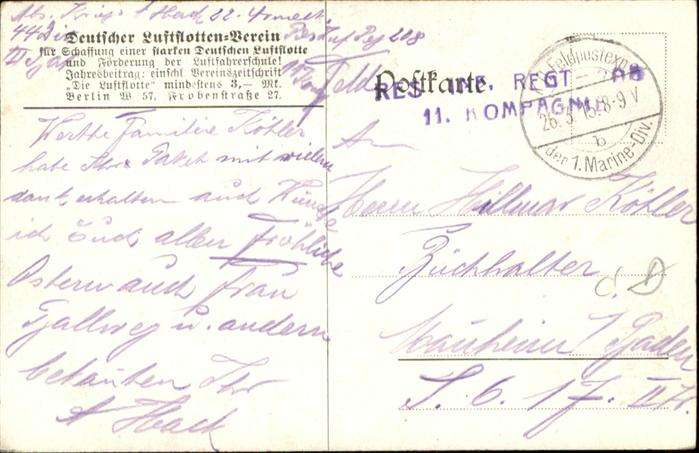 Abs. Krieg. Hack 22. Armee
44 Di Res Inf Reg 208
Deutscher Luftflotten-Verein
für Schaffung einer starken Deutschen Luftflotte
und Förderung der Luftfahrerschule!
Jahresbeitrag: einschl Vereinszeitschrift
"Die Luftflotte" mindestens 3,— Mk.
Berlin W 57, Frobenstraße 27.
Werthe Familie Köhler
habe Ihr Paket mit vielem
dank erhalten auch Wünsche
ich Euch allen Fröhliche
Ostern auch Frau
u. andern
Ihr
A Hack
Feld
Postkarte
RES INF. REGT
11. KOMPAGNIE
Feldpostexp.
26. 3 8-9 V
b
der 1. Marine-Div.
An
Herrn Hillmar Köhler
Buchhalter
Mannheim Baden
S. 6. 17. II